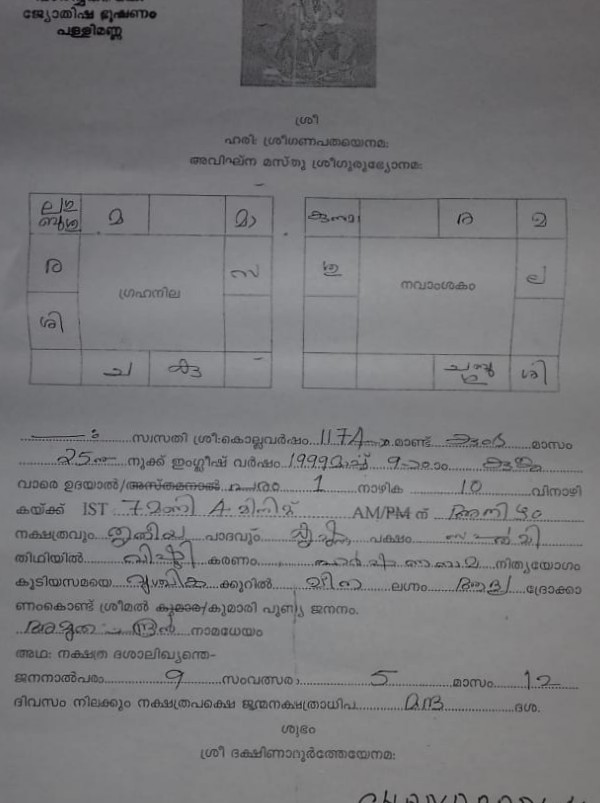 ജ്യോതിഷ ഭൂഷണം
പള്ളിമണ്ണ
ശ്രീ
ഹരി: ശ്രീഗണപതയെനമ:
അവിഘ്ന മസ്തു ശ്രീഗുരുഭ്യോനമ:
ല ഗു ബു ശു മ മാ
ര സ
ഗ്രഹനില
ശി
ച കു
കു മാ ര മ
ഗു ല
നവാംശകം
ച ബു ശു ശി
സ്വസതി ശ്രീ:കൊല്ലവർഷം 1174 -ാ.മാണ്ട് കുംഭ മാസം
25 നു നൂക്ക് ഇംഗ്ലീഷ് വർഷം 1999 മാർച്ച് 9-ാം
വാരെ ഉദയാൽ/അസ്തമനാൽ പരം 1 നാഴിക 10 വിനാഴി
കയ്ക്ക് IST 7 മണി 4 മിനിട്ട് AM/PM ന് അനിഴം
നക്ഷത്രവും തൃതീയ പാദവും കൃഷ്ണ പക്ഷം സപ്തമി
തിഥിയിൽ വിഷ്ടി കരണം നിത്യയോഗം
കൂടിയസമയെ വൃശ്ചിക ക്കൂറിൽ മീന ലഗ്നം ആദ്യ ദ്രോക്കാ
ണംകൊണ്ട് ശ്രീമൽ കുമാര/കുമാരി പുണ്യ ജനനം.
നാമധേയം
അഥ: നക്ഷത്ര ദശാലിഖ്യന്തെ-
ജനനാൽപരം 9 സംവത്സര 5 മാസം 12
ദിവസം നിലക്കും നക്ഷത്രപക്ഷെ ജന്മനക്ഷത്രാധിപ മന്ദ ദശ.
ശുഭം
ശ്രീ ദക്ഷിണാമൂർത്തേയനമ: